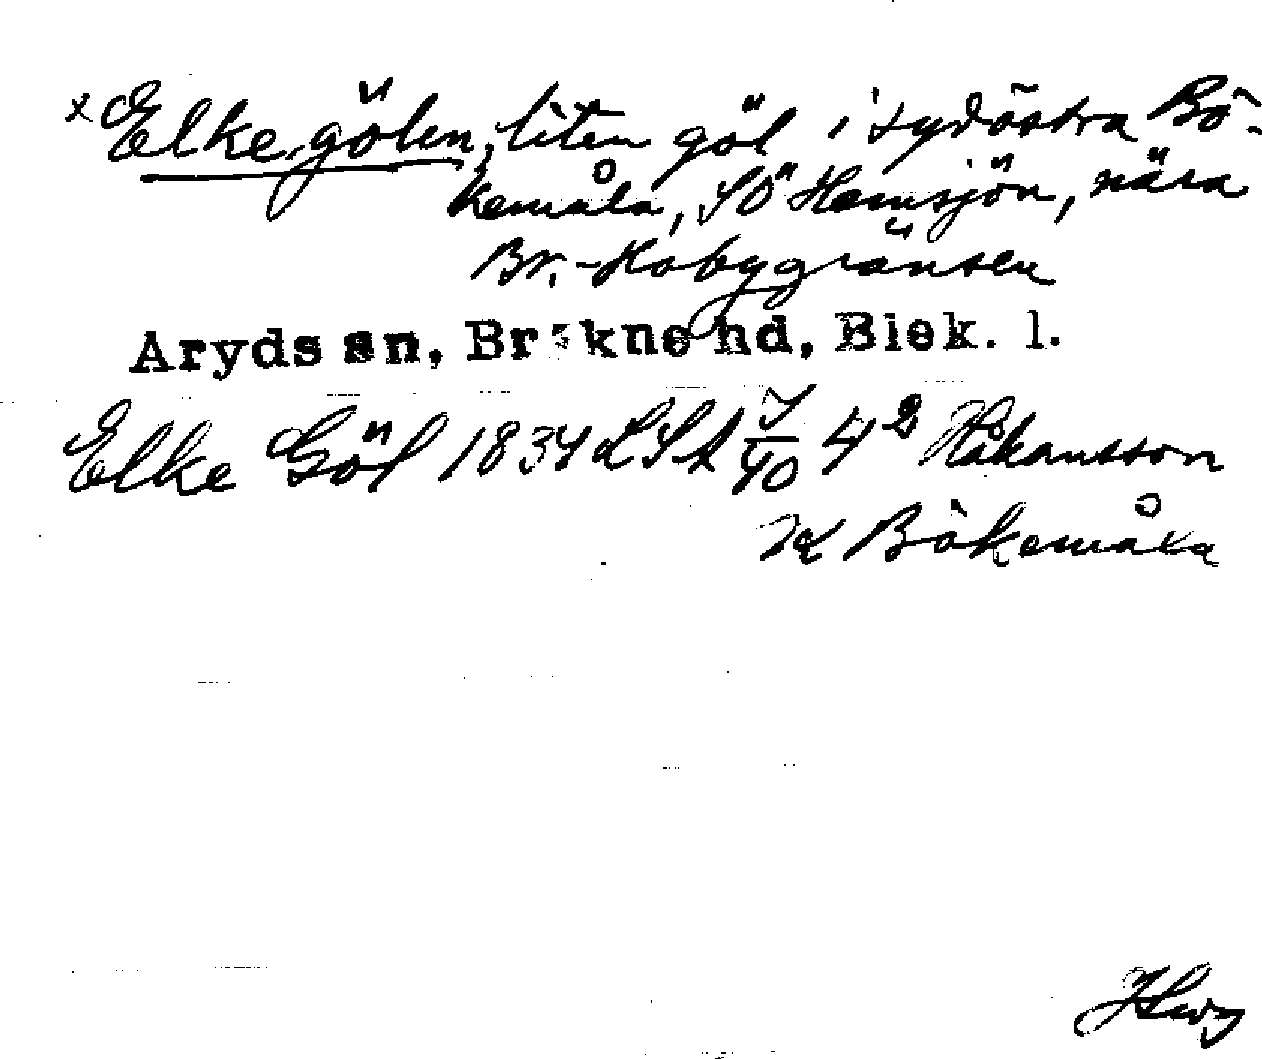 x Elke,gölen, liten göl i sydöstra Bö-
kemåla, SÖ Hemsjön, nära
Br.-Hobygränsen
Aryds sn, Bräkne hd, Blek. l.
Elke Göl 1834 LSA 4² Håkansson
K Bökemåla